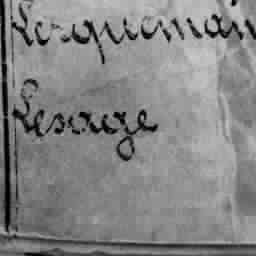 Lerquemain
Lesaege